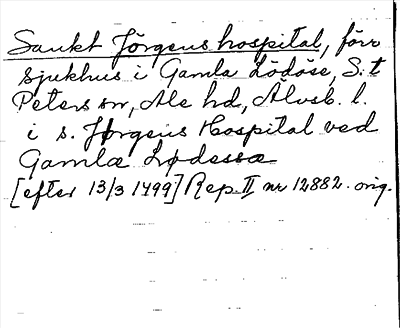 Sankt Jörgens hospital, förv
sjukhus i Gamla Lödöse, S:t
Peters sn, Ale hd, Älvsb. l.
i s. Jørgens Hospital ved
Gamlæ Lødessæ
[efter 13/3 1499] Rep. II nr 12882. orig.